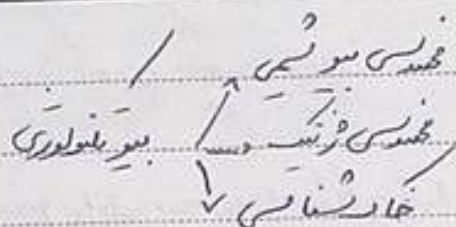 مهندسی بیو شیمی
مهندسی ژنتیک بیوتکنولوژی
خاک شناسی